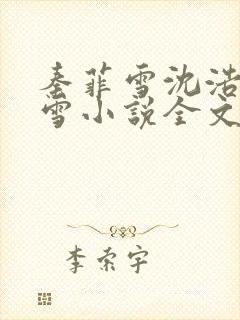 秦菲雪沈浩
雪小说全文
李索宇